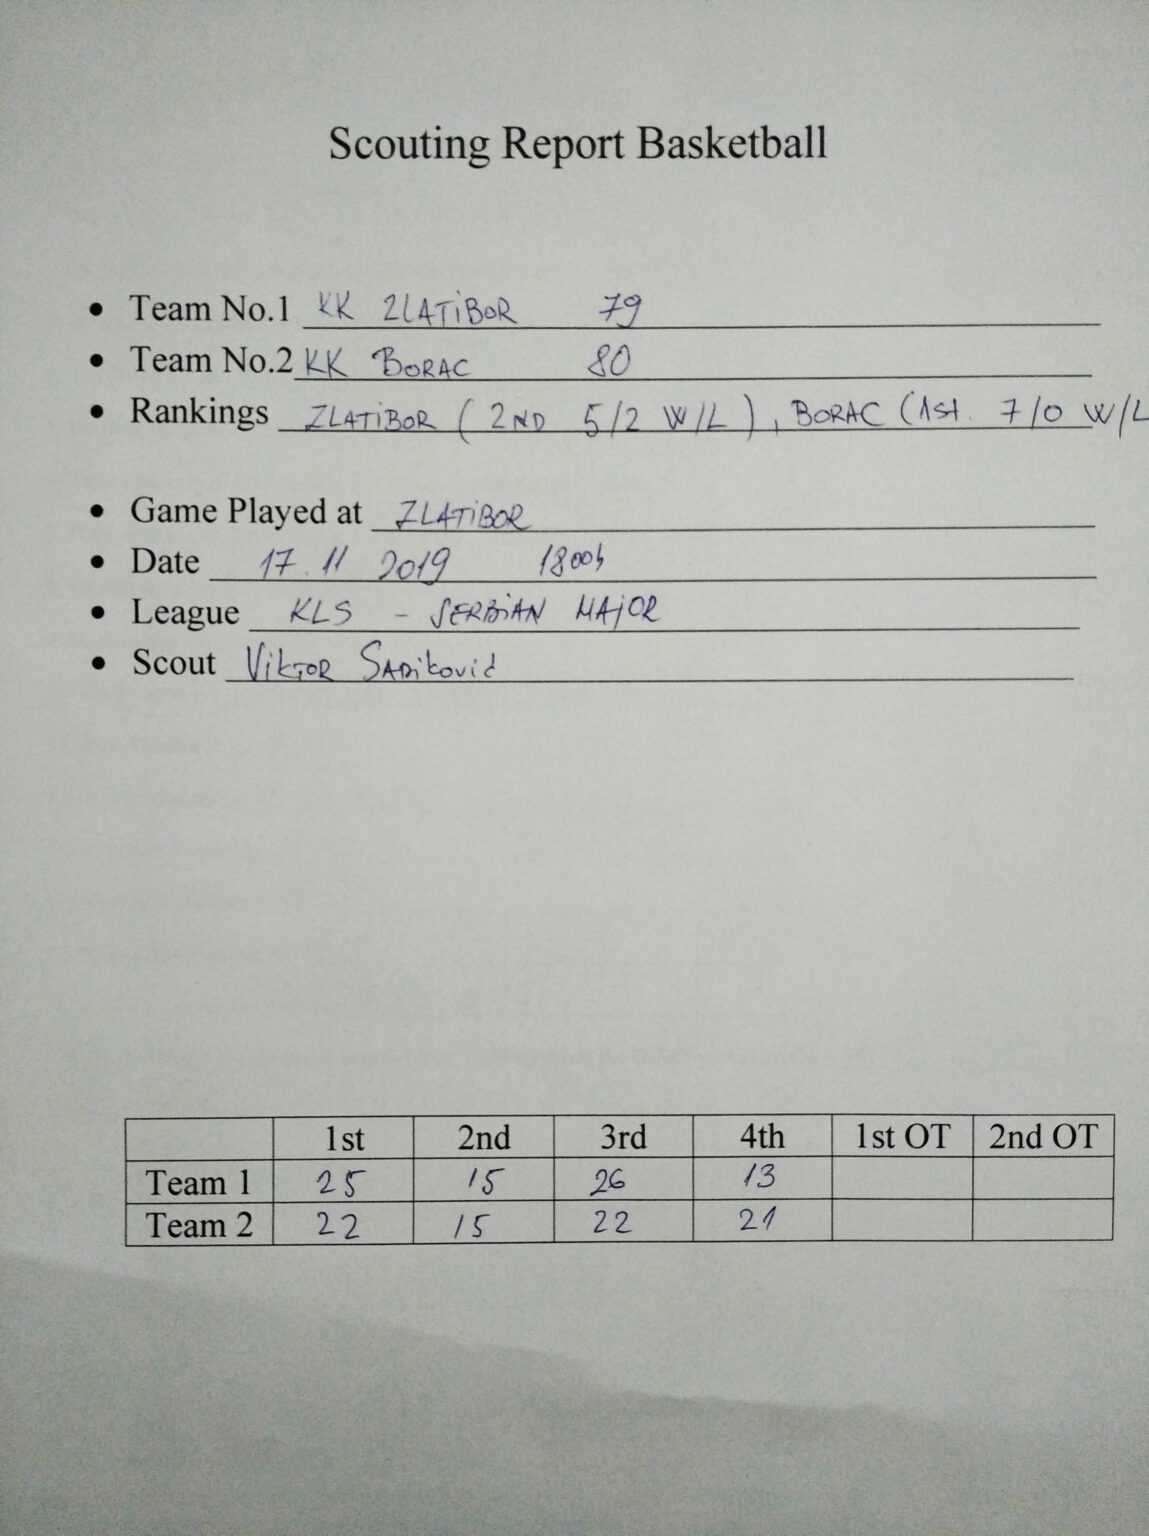 Scouting Report Basketball
• Team No.1 KK ZLATIBOR 79
• Team No.2 KK BORAC 80
• Rankings ZLATIBOR ( 2ND 5/2 W/L ), BORAC (1st. 7/0 W/L
• Game Played at ZLATIBOR
• Date 17. 11 2019 18 00h
• League KLS - SERBIAN MAJOR
• Scout Viktor SADiković
1st 2nd 3rd 4th 1st OT 2nd OT
Team 1 25 15 26 13
Team 2 22 15 22 21